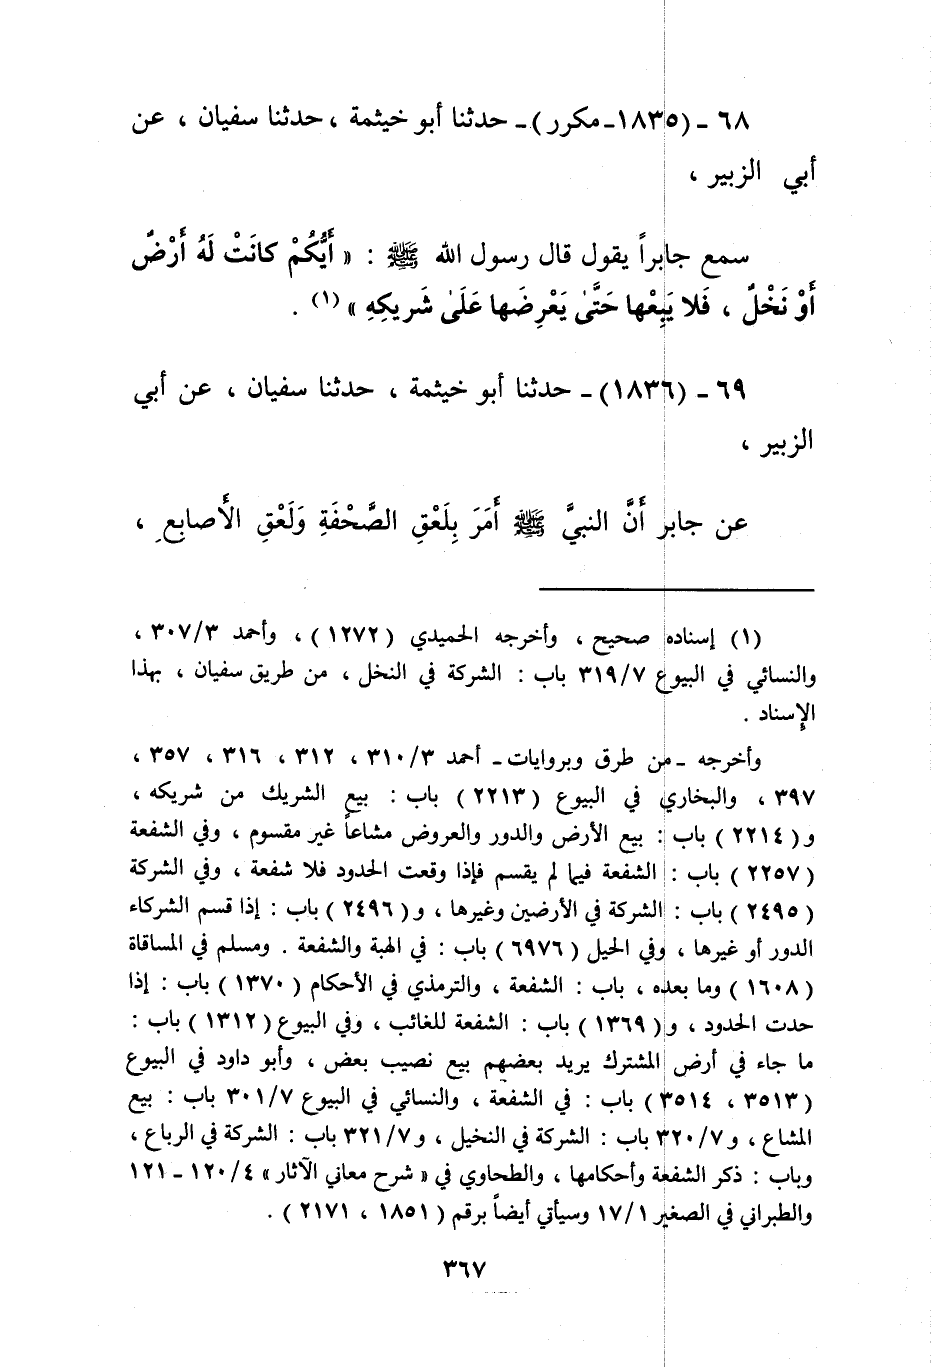 ٦٨ ـ (١٨٣٥ـ مكرر) ـ حدثنا أبو خيثمة ، حدثنا سفيان ، عن
أبي الزبير ،
سمع جابراً يقول قال رسول الله ﷺ : « أَيُّكُمْ كانَتْ لَهُ أَرْضٌ
أَوْ نَخْلٌ ، فَلا يَبِعْها حَتَّىٰ يَعْرِضَها عَلَىٰ شَريكِهِ » (١) .
٦٩ ـ (١٨٣٦) ـ حدثنا أبو خيثمة ، حدثنا سفيان ، عن أبي
الزبير ،
عن جابر أَنَّ النبيَّ ﷺ أَمَرَ بِلَعْقِ الصَّحْفَةِ وَلَعْقِ الأَصابِعِ ،
(١) إسناده صحيح ، وأخرجه الحميدي (١٢٧٢) ، وأحمد ٣٠٧/٣ ،
والنسائي في البيوع ٣١٩/٧ باب : الشركة في النخل ، من طريق سفيان ، بهذا
الإسناد .
وأخرجه ـ من طرق وبروايات ـ أحمد ٣١٠/٣ ، ٣١٢ ، ٣١٦ ، ٣٥٧ ،
٣٩٧ ، والبخاري في البيوع (٢٢١٣) باب : بيع الشريك من شريكه ،
و (٢٢١٤) باب : بيع الأرض والدور والعروض مشاعاً غير مقسوم ، وفي الشفعة
(٢٢٥٧) باب : الشفعة فيما لم يقسم فإذا وقعت الحدود فلا شفعة ، وفي الشركة
(٢٤٩٥) باب : الشركة في الأرضين وغيرها ، و (٢٤٩٦) باب : إذا قسم الشركاء
الدور أو غيرها ، وفي الحيل (٦٩٧٦) باب : في الهبة والشفعة . ومسلم في المساقاة
(١٦٠٨) وما بعده ، باب : الشفعة ، والترمذي في الأحكام (١٣٧٠) باب : إذا
حدت الحدود ، و (١٣٦٩) باب : الشفعة للغائب ، وفي البيوع (١٣١٢) باب :
ما جاء في أرض المشترك يريد بعضهم بيع نصيب بعض ، وأبو داود في البيوع
(٣٥١٣ ، ٣٥١٤) باب : في الشفعة ، والنسائي في البيوع ٣٠١/٧ باب : بيع
المشاع ، و ٣٢٠/٧ باب : الشركة في النخيل ، و ٣٢١/٧ باب : الشركة في الرباع ،
وباب : ذكر الشفعة وأحكامها ، والطحاوي في « شرح معاني الآثار » ١٢٠/٤ ـ ١٢١
والطبراني في الصغير ١٧/١ وسيأتي أيضاً برقم (١٨٥١ ، ٢١٧١) .
٣٦٧